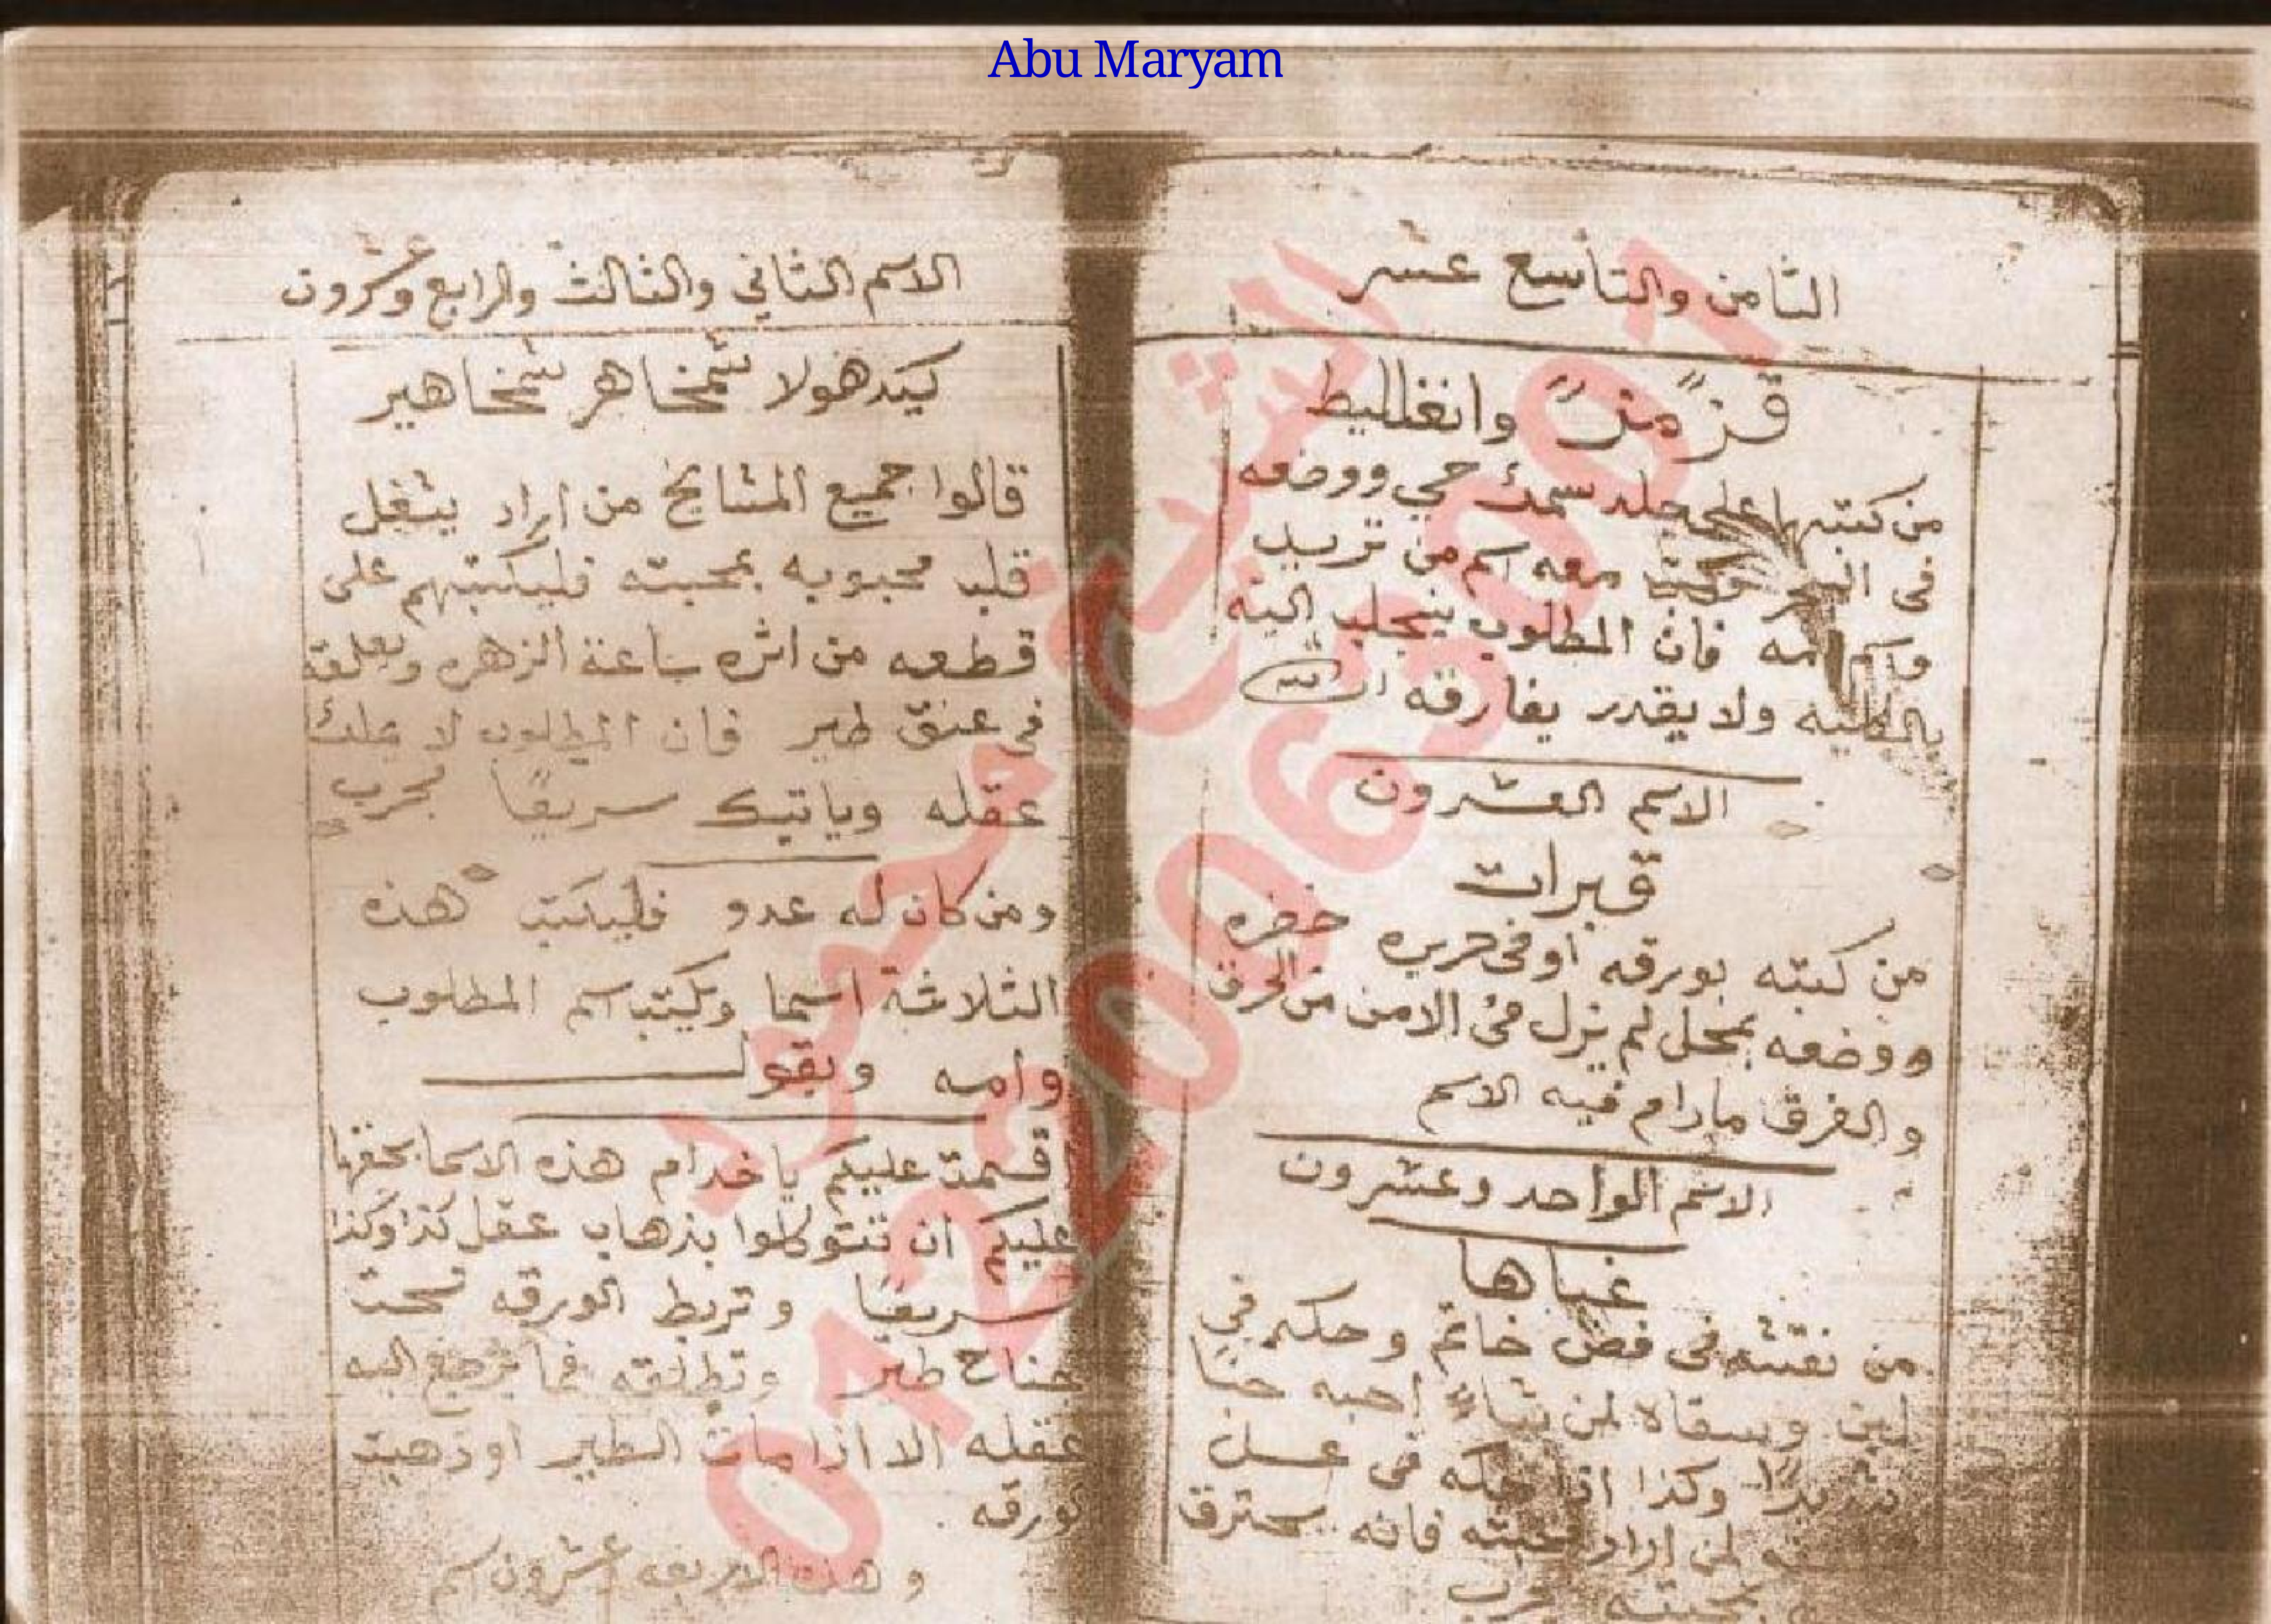 Abu Maryam
الثامن والتاسع عشر
قز مز وانغلليط
من كتبهما على جلد سمك حي ووضعه
فى معه اسم من تريد
واسم امه فان المطلوب ينجلب اليه
ولا يقدر يفارقه
الاسم العشرون
قبرات
من كتبه بورقه اوفى حريره خضره
ووضعه بمحل لم يزل فى الامن من الحرق
والغرق مادام فيه الاسم
الاسم الواحد وعشرون
غياها
من نقشه فى فص خاتم وحكه في
لبن وسقاه لمن شاء احبه حبا
شديدًا وكذا اذا حكه فى عسل
لمن اراد محبته فانه يحترق
بمحبته
الاسم الثاني والثالث والرابع وعشرون
كيدهولا شمخاهر شمخاهير
قالوا جميع المشايخ من اراد يشغل
قلب محبوبه بمحبته فليكتبهم على
قطعه من اثره ساعة الزهره ويعلقه
فى عنق طير فان المطلوب لا يملك
عقله وياتيك سريعًا مجرب
ومن كان له عدو فليكتب هذه
الثلاثة اسما ويكتب اسم المطلوب
وامه ويقول
أقسمت عليكم يا خدام هذه الاسما بحقها
عليكم ان تتوكلوا بذهاب عقل كذا وكذا
سريعًا وتربط الورقه تحت
جناح طير وتطلقه فما يرجع اليه
عقله الا اذا مات الطير او ذهبت
الورقه
عشرون اسم
01220063001